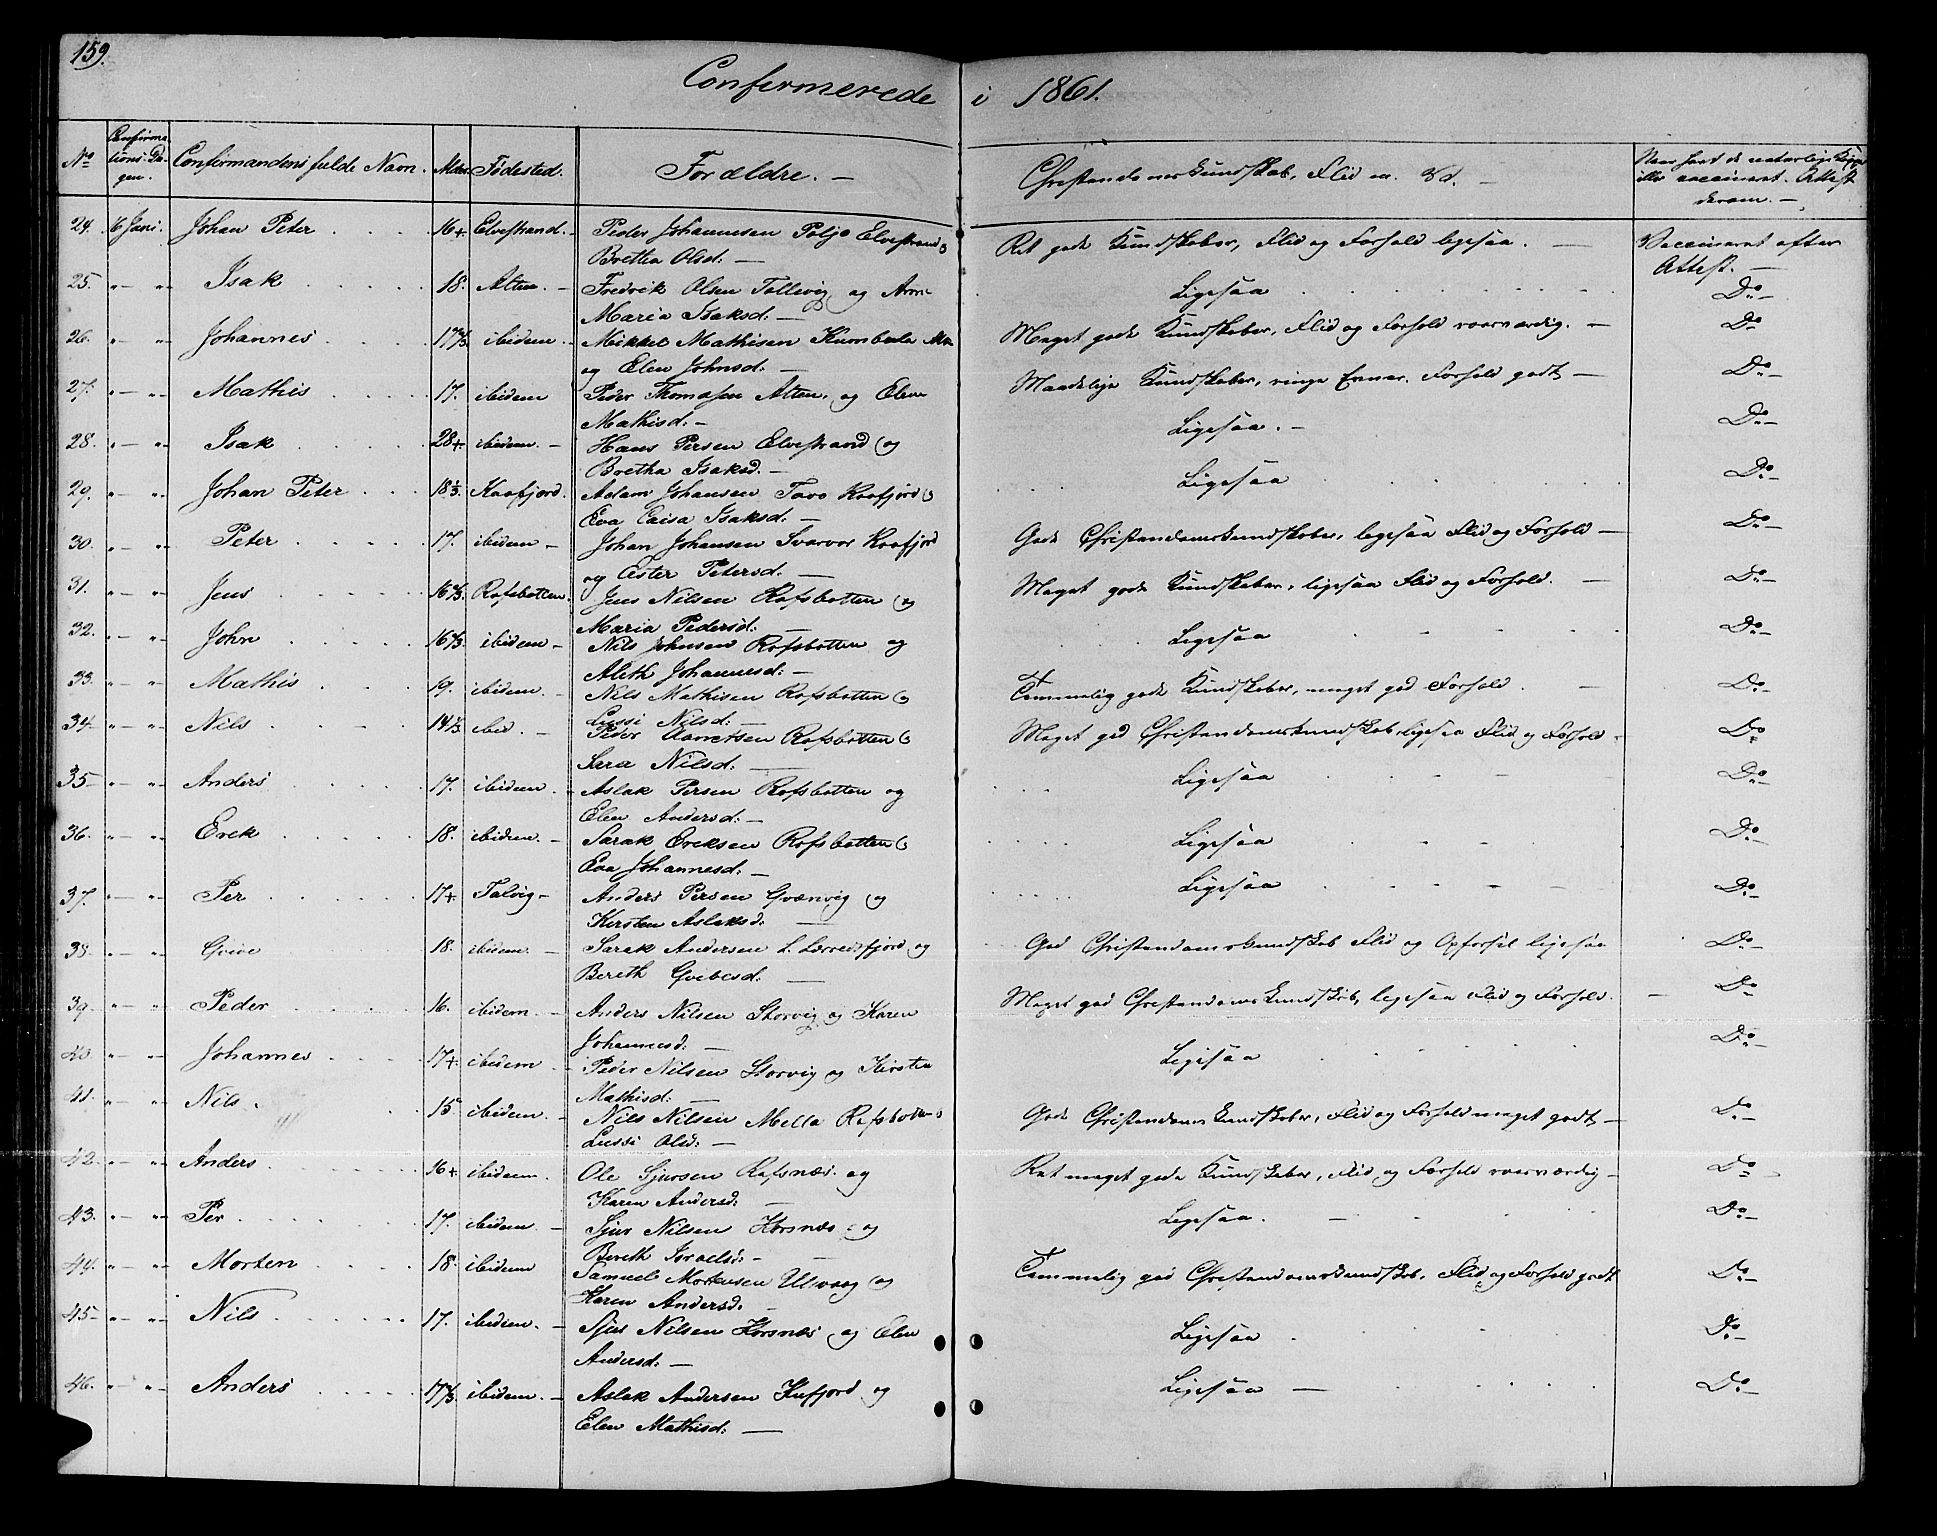 159.
Confirmerede i 1861.
No Confirmationsdagen. Confirmandens fulde Navn. Alder Fødested. Forældre. — Christendomskundskab, Flid m. M. — Naar havt de naturlige Kopper eller vaccineret. Attest derom. —
24. 16 Juni. Johan Peter . . . 16+ Elvestrand. Peder Johannesen Poljo Elvestrand og Ret gode Kundskaber, Flid og Forhold ligesaa. — Vaccineret efter
Brettha Olsd: — Attest. —
25. " — " Isak . . . 18. Alten. — Fredrik Olsen Tallevig og Ligesaa Do —
Maria Isaksd: —
26. " — " Johannes . . . ibidem. Mikkel Mathisen og Meget gode Kundskaber, Flid og Forhold roesværdig. — Do
og Elen Johnsd: —
27. " — " Mathis . . . 17. ibidem Peder Thomasen Alten, og Elen Maadelige Kundskaber, ringe Evner. Forhold godt — Do —
Mathisd: —
28. " — " Isak . . . 28+ ibidem. — Hans Persen Elvestrand og Ligesaa. — Do —
Bretha Isaksd. —
29. " — " Johan Peter . . . 18⅓ Kaafjord. Adam Johansen Tavo Kaafjord og Ligesaa Do —
Eva Caisa Isaksd. —
30. " — " Peter . . . 17. ibidem — Johan Johansen Svarvar Kaafjord Gode Christendomskundskaber, ligesaa Flid og Forhold — Do —
og Ester Petersd. —
31. " — " Jens . . . 16⅔ Rafsbotten. Jens Nilsen Rafsbotten og Meget gode Kundskaber, ligesaa Flid og Forhold. — Do —
Maria Pedersd: —
32. " — " John . . . 16⅔ ibidem — Nils Johnsen Rafsbotten og Ligesaa Do —
Aleth Johannesd: —
33. " — " Mathis . . . 19. ibidem. — Nils Mathisen Rafsbotten og Temmelig gode Kundskaber, meget god Forhold. — Do —
Lussi Nilsd: —
34. " — " Nils . . . 14⅓ ibid. — Peder Rafsbotten og Meget god Christendomskundskab, ligesaa Flid og Forhold — Do
Sara Nilsd: —
35 — " — " Anders . . . 17. ibidem — Aslak Persen Rafsbotten og Ligesaa Do —
Elen Andersd: —
36. " — " Erek . . . 18. ibidem. — Sarak Ereksen Rafsbotten og Ligesaa Do —
Eva Johannesd: —
37. " — " Per . . . 17+ Talvig — Anders Persen Qvænvig og Ligesaa Do —
Kirsten Aslaksd: —
38. " — " Gvive 18. ibidem. — Sarak Andersen L. Lerredsfjord og God Christendomskundskab Flid og Opførsel ligesaa Do —
Bereth Gvibesd: —
39. " — " Peder . . . 16. ibidem. — Anders Nilsen Storvig og Karen Meget god Christendomskundskab, ligesaa Flid og Forhold. — Do
Johannesd: —
40. " — " Johannes . . . 17+ ibidem — Peder Nilsen Storvig og Kirsten Ligesaa Do —
Mathisd: —
41. " — " Nils . 15 ibidem. — Nils Nilsen Mella Rafsbotten og Gode Christendomskundskaber, Flid og Forhold meget godt — Do —
Lussi Olsd: —
42. — " — " Anders . . . 16+ ibidem. Ole Sjursen Rafsnæs. og Ret meget gode Kundskaber, Flid og Forhold roesværdig — Do —
Karen Andersd: —
43. " — " Per . . . 17. ibidem — Sjur Nilsen Korsnæs og Ligesaa. — Do —
Bereth Israelsd: —
44. " — " Morten . . . 18. ibidem Samuel Mortensen Ulvvaag og Temmelig god Christendomskundskab, Flid og Forhold godt Do —
Karen Andersd. —
45 — " — " Nils . . . 17. ibidem. — Sjur Nilsen Korsnæs og Elen Ligesaa Do —
Andersd: —
46. " — " Anders . . . 17⅓ ibidem. — Aslak Andersen Kufjord og Ligesaa — Do —
Elen Mathisd: —